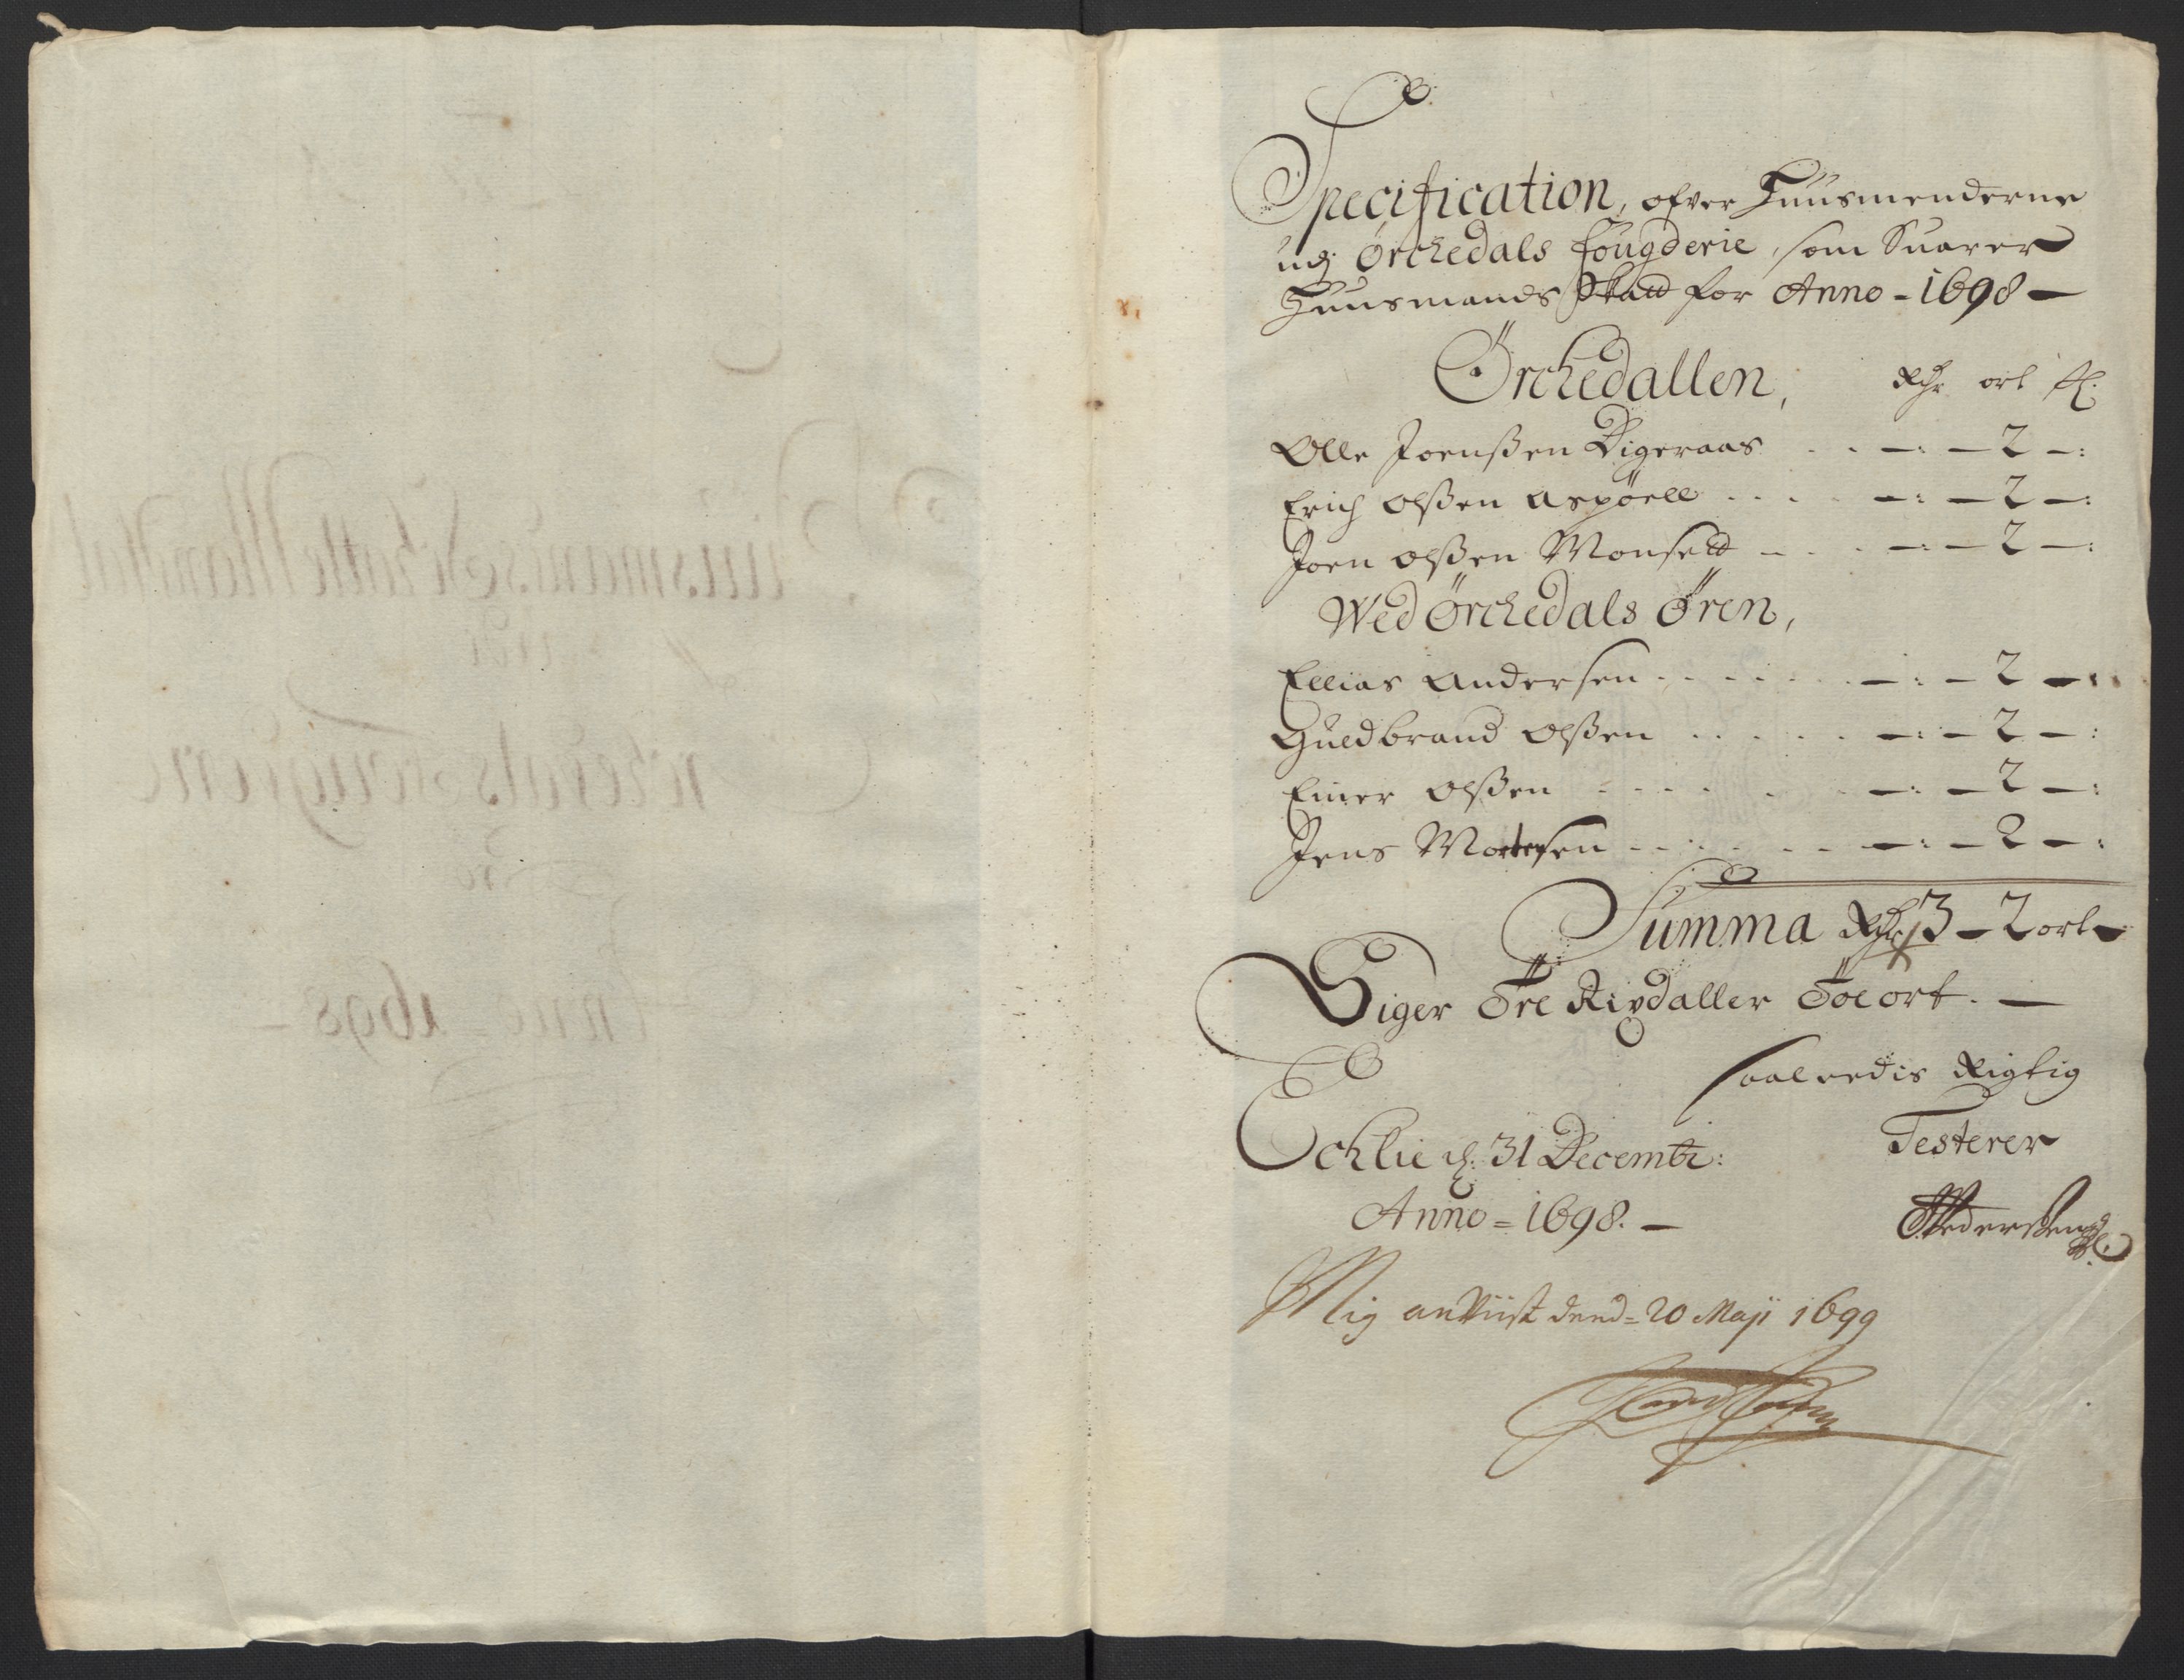 Specification, ofver Huusmenderne
udj Örchedals fougderie, som Suarer
Huusmands Skatt for Anno - 1698 —
Örchedallen, Rdr ort ſl.
Olle Joenßen Digeraas . . —: — 2 —:
Erich Olßen Aspöell . . . —: — 2 —:
Joen Olßen Monsett . . . —: — 2 —:
Wed Örchedals Ören,
Ellias Andersen . . . . —: — 2 —:
Guldbrand Olßen . . . . —: — 2 —:
Einer Olßen . . . . —: — 2 —:
Jens Mortensen . . . . —: — 2 —:
Summa Rdr 3 — 2 ort —
Siger Tre Rixdaller Töe ort. —
saaledis Rigtig
Echlie d. 31 Decembr: Testerer
Anno = 1698. —
Mig anviist dend = 20 Maji 1699